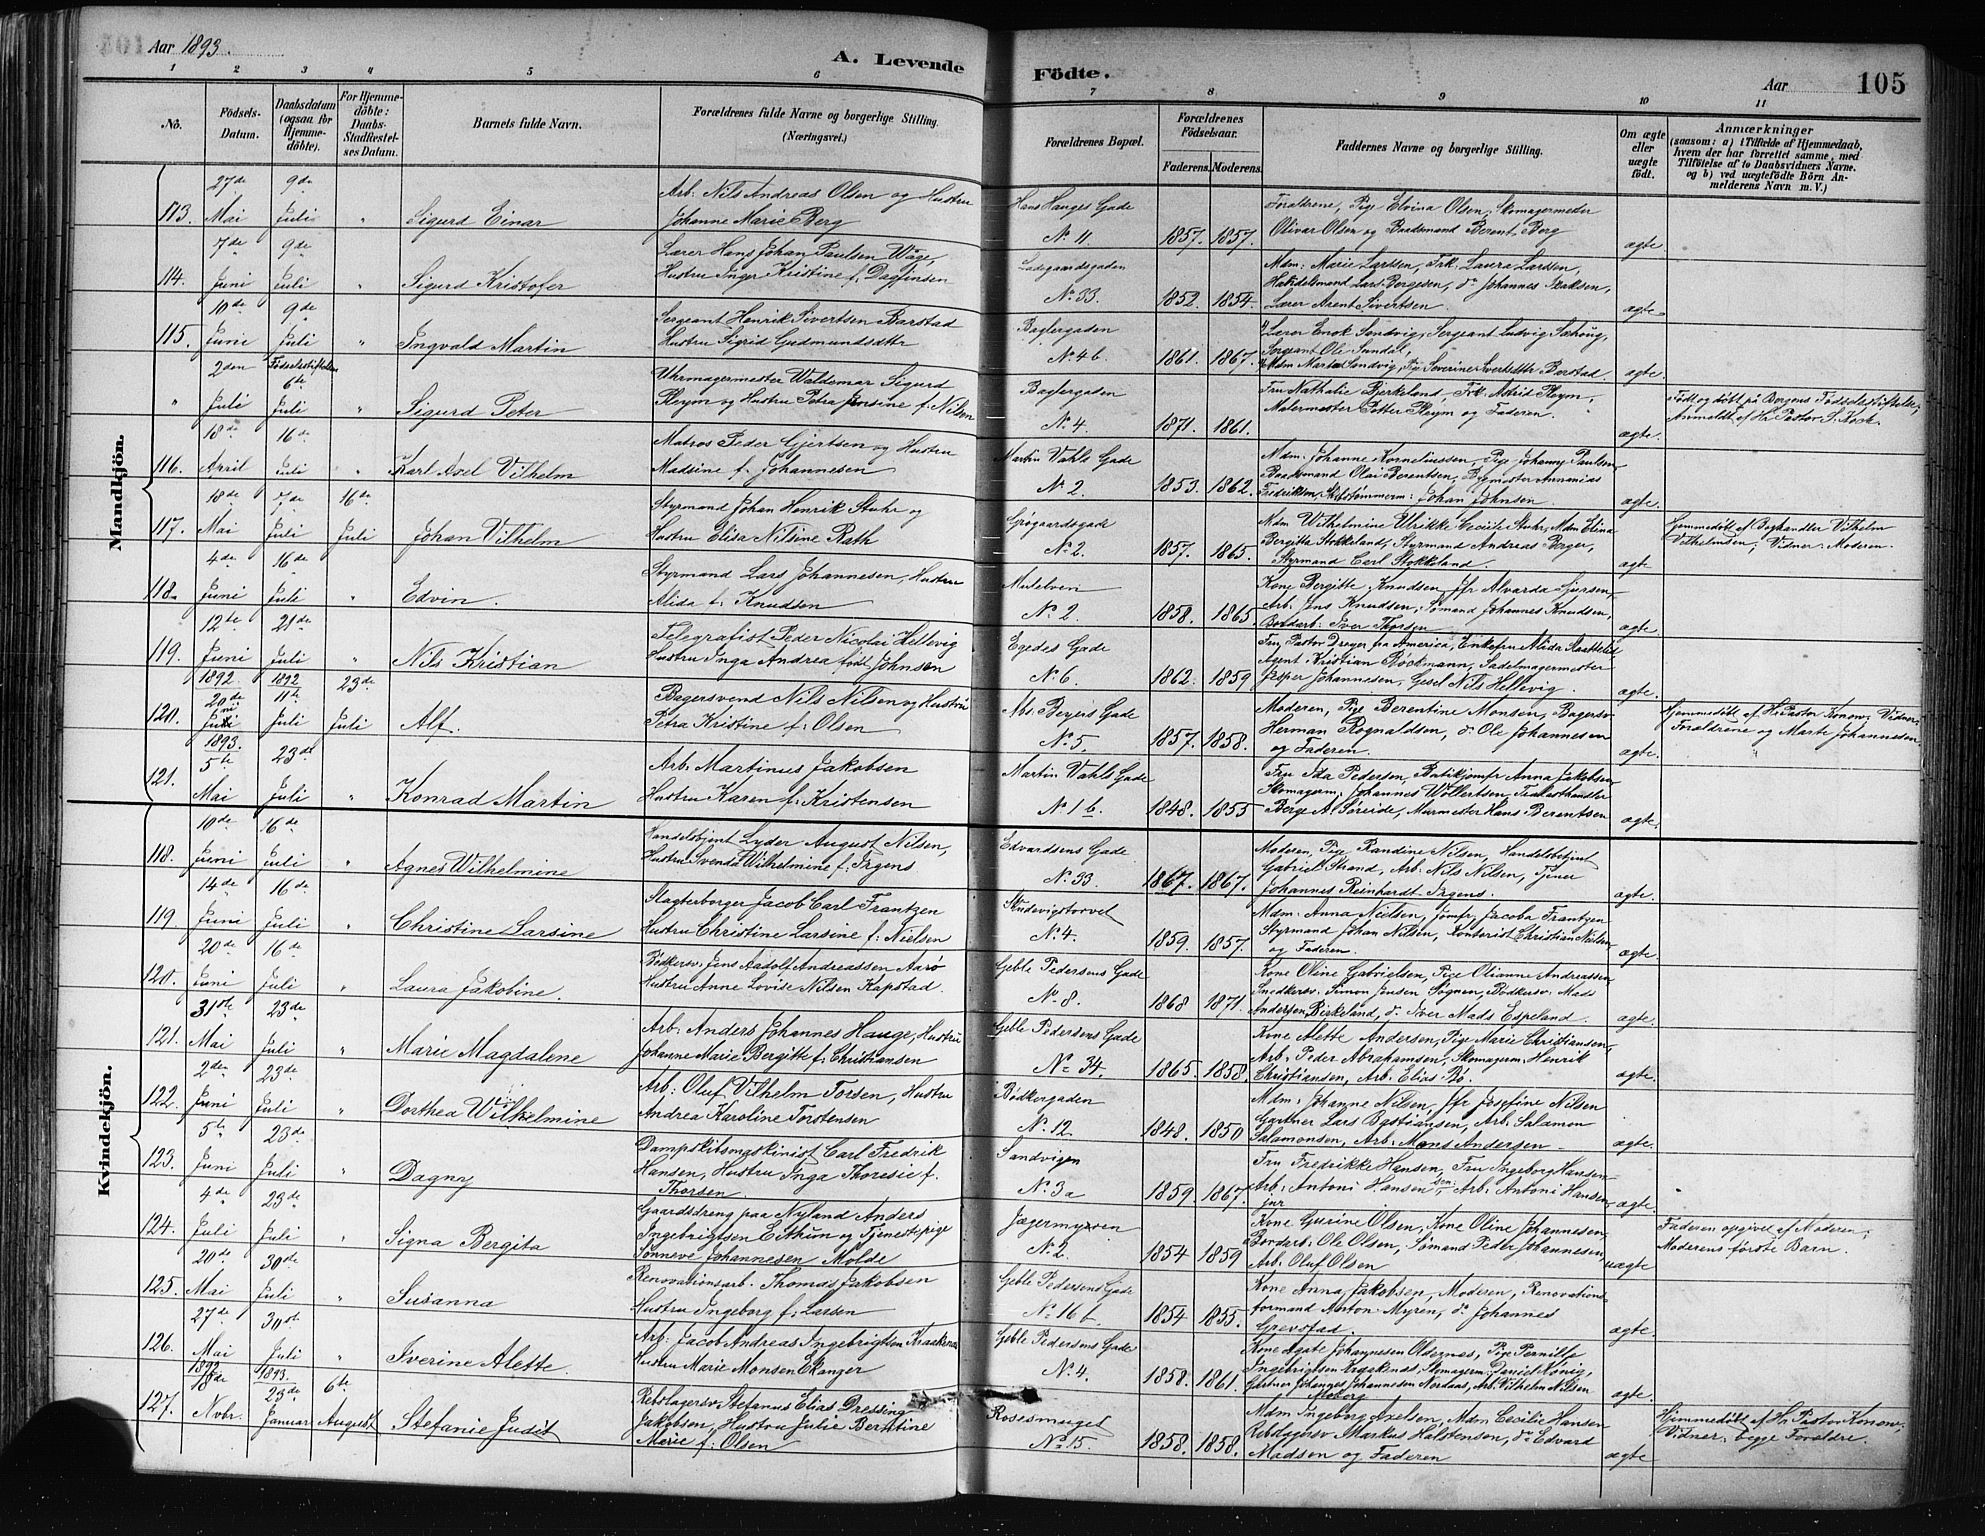 Aar 1893.
A. Levende Födte.
Aar 105
1 2 3 4 5 6 7 8 9 10 11
No.
Födsels-Datum.
Daabsdatum (ogsaa for Hjemmedöbte).
For Hjemmedöbte: Daabs-Stadfæstelses Datum.
Barnets fulde Navn.
Forældrenes fulde Navne og borgerlige Stilling. (Næringsvei.)
Forældrenes Bopæl.
Forældrenes Födselsaar.
Faderens. Moderens.
Faddernes Navne og borgerlige Stilling.
Om ægte eller uægte födt.
Anmærkninger
(saasom: a) i Tilfælde af Hjemmedaab, hvem der har forrettet samme, med Tilföielse af to Daabsvidners Navne. og b) ved uægtefödte Börn Anmelderens Navn m. V.)
Mandkjön.
113. 27de Mai 9de Juli " Sigurd Einar
Arb. Nils Andreas Olsen og Hustru
Johanne Marie Berg
Hans Hauges Gade
No 11. 1857. 1857.
Forældrene, Pige Elvina Olsen, Skomagermester
Olivar Olsen og Baadsmand Berent Berg
ægte.
114. 7de Juni 9de Juli " Sigurd Kristofer
Lærer Hans Johan Paulsen Wåge,
Hustru Inger Kristine f. Dagfinsen
Ladegaardsgaden
No. 33. 1852. 1854.
Mdm: Marie Larssen, Frk: Laura Larssen,
Handelsmand Lars Borgesen, do Johannes Isaksen,
Lærer Arent Sivertsen.
ægte.
115. 10de Juni 9de Juli " Ingvald Martin
Sergeant Henrik Sivertsen Barstad
Hustru Sigrid Gudmundsdtr
Baglergaden
No. 4b. 1861. 1867.
Lærer Enok Sandvig, Sergeant Ludvig Sæhoug,
Sergeant Ole Sundal,
Mdm Marie Sandvig, Pige Severine Sivertsdtr Barstad.
ægte.
" 2den Juli Födselsstiftelsen 6te Juli " Sigurd Peter
Uhrmagermester Waldemar Sigurd
Røym og Hustru Petra Jensine f. Nilsen
Baglergaden
No. 4. 1871. 1861.
Fru Nathalie Bjerkeland, Frk: Astrid Røym,
Malermester Petter Røym og Faderen.
ægte.
Født og døbt på Bergens Fødselsstiftelse,
Anmeldt af Hr Pastor S. Koch.
116. 18de April 16de Juli " Karl Axel Vilhelm
Matros Peder Gjertsen og Hustru
Madsine f. Johannesen
Martin Vahls Gade
No 2. 1853. 1862.
Mdm: Johanne Korneliussen, Pige Johanne Paulsen
Baadsmand Olai Berentsen, Bygmester Annanias
Fredriksen, Skibstømmerm: Johan Johnsen
ægte.
117. 18de Mai 7de Juli 16de Juli Johan Vilhelm
Styrmand Johan Henrik Stuhr og
Hustru Elisa Nilsine Rath
Grøgaardsgade
No 2. 1857. 1865.
Mdm Wilhelmine Ulrikke Cecilie Stuhr, Mdm Elina
Bergitta Stokkeland, Styrmand Andreas Berger,
Styrmand Carl Stokkeland.
ægte
Hjemmedöbt af Boghandler Vilhelm
Vilhelmsen, Vidner: Moderen.
118. 4de Juni 16de Juli " Edvin.
Styrmand Lars Johannesen, Hustru
Alida f. Knudsen
Mulelven
No 2. 1858. 1865.
Kone Bergitte Knudsen, Jfr Alvarda Sjursen,
Arb: Jens Knudsen, Sømand Johannes Knudsen,
Bordarb: Iver Thorsen
ægte.
119. 12te Juni 21de Juli " Nils Kristian
Telegrafist Peder Nicolai Hellevig
Hustru Inga Andrea født Johnsen
Egedes Gade
No. 6. 1862. 1859
Fru Pastor Dreyer fra America, Enkefru Alida Skattebøl
Agent Kristian Bøckmann, Sadelmagermester
Jesper Johannesen, Gesel Nils Hellevig.
ægte.
120. 1892 20de Juni 1892 11te Juli 23de Juli Alf.
Bagersvend Nils Nilsen og Hustru
Petra Kristine f. Olsen
Abs. Beyers Gade
No. 5. 1857. 1858.
Moderen, Pige Berentine Monsen, Bagersv
Herman Rognaldsen, do Ole Johannesen
og Faderen.
ægte.
Hjemmedöbt af Hr Pastor Konow, Vidner,
Forældrene og Marte Johannesen.
121. 1893. 5te Mai 23de Juli " Konrad Martin
Arb: Martinus Jakobsen
Hustru Karen f. Kristensen
Martin Vahls Gade
No. 1b. 1848. 1855
Fru Ida Pederson, Butikjomfr Anna Jakobsen
Skomagerm: Johannes Wollertsen, Trælasthandler
Berge A. Søreide, Murmester Hans Berentsen
ægte.
Kvindekjön.
118. 10de Juni 16de Juli " Agnes Wilhelmine
Handelsbetjent Lyder August Nilsen,
Hustru Svenda Wilhelmine f. Irgens
Edvardsens Gade
No. 33. 1867. 1867.
Moderen, Pige Randine Nilsen, Handelsbetjent
Gabriel M Strand, Arb: Nils Nilsen, Tjener
Johannes Reinhardt Irgens.
ægte.
119. 14de Juni 16de Juli " Christine Larsine
Slagterborger Jacob Carl Frantzen
Hustru Christine Larsine f. Nielsen
Skudevigstorvet
No. 4. 1859. 1857.
Mdm: Anna Nielsen, Jomfr: Jacoba Frantzen
Styrmand Johan Nilsen, Kontorist Christian Nielsen
og Faderen.
ægte.
120. 20de Juni 16de Juli " Laura Jakobine.
Bødkersv: Jens Aadolf Andreassen Aarø
Hustru Anne Lovise Nilsen Kapstad.
Geble Pedersens Gade
No. 8. 1868 1871.
Kone Oline Gabrielsen, Pige Olianne Andreassen
Snedkersv: Simon Jensen Sognen, Bødkersv: Mads
Andersen Birkeland, do Iver Mads Espeland.
ægte.
121. 31te Mai 23de Juli " Marie Magdalene
Arb: Anders Johannes Hauge, Hustru
Johanne Marie Bergitte f. Christiansen
Geble Pedersens Gade
No 34. 1865. 1858.
Kone Alette Andersen, Pige Marie Christiansen,
Arb: Peder Abrahamsen, Skomagerm: Henrik
Christiansen, Arb: Elias Bø.
ægte.
122. 2den Juni 23de Juli " Dorthea Wilhelmine
Arb: Oluf Vilhelm Torsen, Hustru
Andrea Karoline Torstensen
Bødkergaden
No. 12 1848. 1850
Mdm: Johanne Nilsen, Jfr Josefine Nilsen
Gartner Lars Bastiansen, Arb: Salamon
Salamonsen, Arb: Mons Andersen
ægte.
123. 5te Juni 23de Juli " Dagny
Dampskibsmaskinist Carl Fredrik
Hansen, Hustru Inga Thoresie f.
Thorsen
Sandvigen
No. 3a 1859. 1867.
Fru Fredrikke Hansen, Fru Ingeborg Hansen
Arb: Antoni Hansen sen:, Arb: Antoni Hansen
jnr
ægte.
124. 4de Juli 23de Juli " Signa Bergita
Gaardsdreng paa Nyland Anders
Ingebrigtsen Eithun og Tjenestepige
Sønneve Johannesen Molde
Jægermyren
No 2. 1854 1859
Kone Gurine Olsen, Kone Oline Johannesen,
Bordarb: Ole Olsen, Sømand Peder Johannesen,
Arb: Oluf Olsen
uægte
Faderen opgivet af Moderen,
Moderens første Barn.
125. 20de Mai 30de Juli " Susanna
Renovationsarb. Thomas Jakobsen
Hustru Ingeborg f. Larsen
Geble Pedersens Gade
No 16b. 1854 1855.
Kone Anna Jakobsen, Moderen, Renovations-
formand Anton Myren, do Johannes
Grevstad.
ægte
126. 27de Mai 30te Juli " Iverine Alette.
Arb: Jacob Andreas Ingebrigtsen Kraakenæs
Hustru Marie Monsen Ekanger
Geble Pedersens Gade
No. 4. 1858. 1861.
Kone Agate Johannesen Oldernes, Pige Pernille
Ingebrigtsen Kraakenes, Skomagerm: Daniel König,
Gartner Johannes Johannesen Nordaas, Arb: Vilhelm Nilsen
Moberg
ægte.
127. 1892 18de Novbr. 1893. 23de Januar 6te August Stefanie Judit
Rebslagersv Stefanus Elias Dressing
Jakobsen, Hustru Julie Berntine
Marie f. Olsen
Rosesmuget
No. 15. 1858. 1858.
Mdm Ingeborg Axelsen, Mdm Cecilie Hansen
Rebslagersv Markus Halstensen, do Edvard
Madsen og Faderen
ægte
Hjemmedöbt af Hr Pastor Konow,
Vidner: begge Forældre.